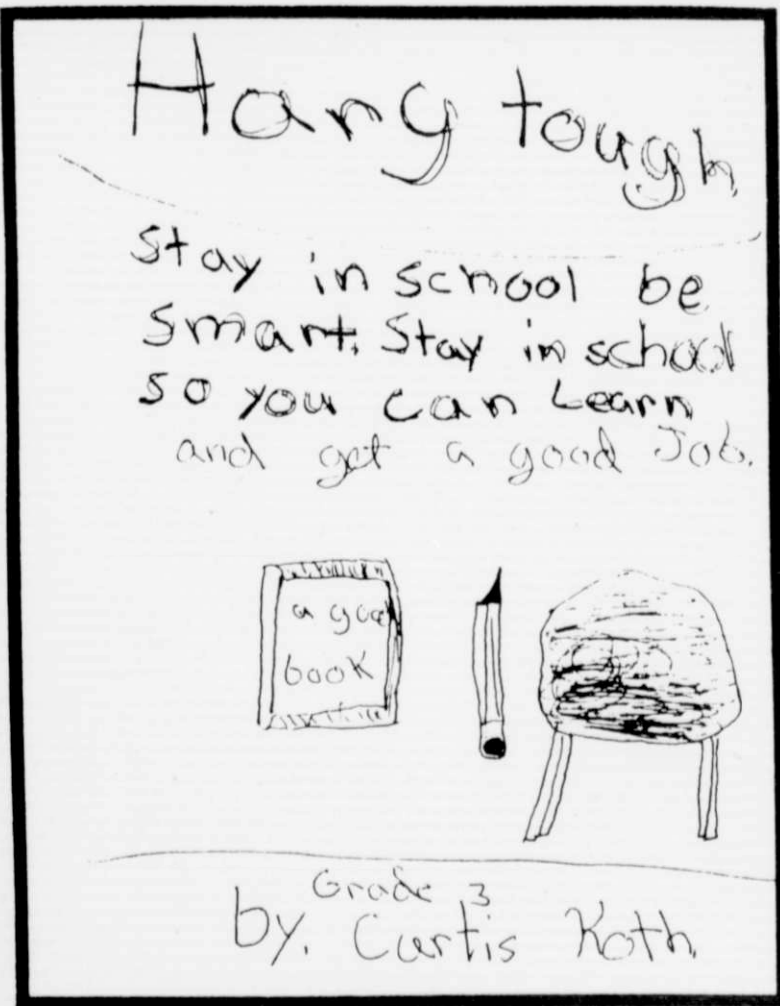 Hang tough
Stay in school be
smart. Stay in school
so you can Learn
and get a good Job.
a good
book
Grade 3
by. Curtis Koth